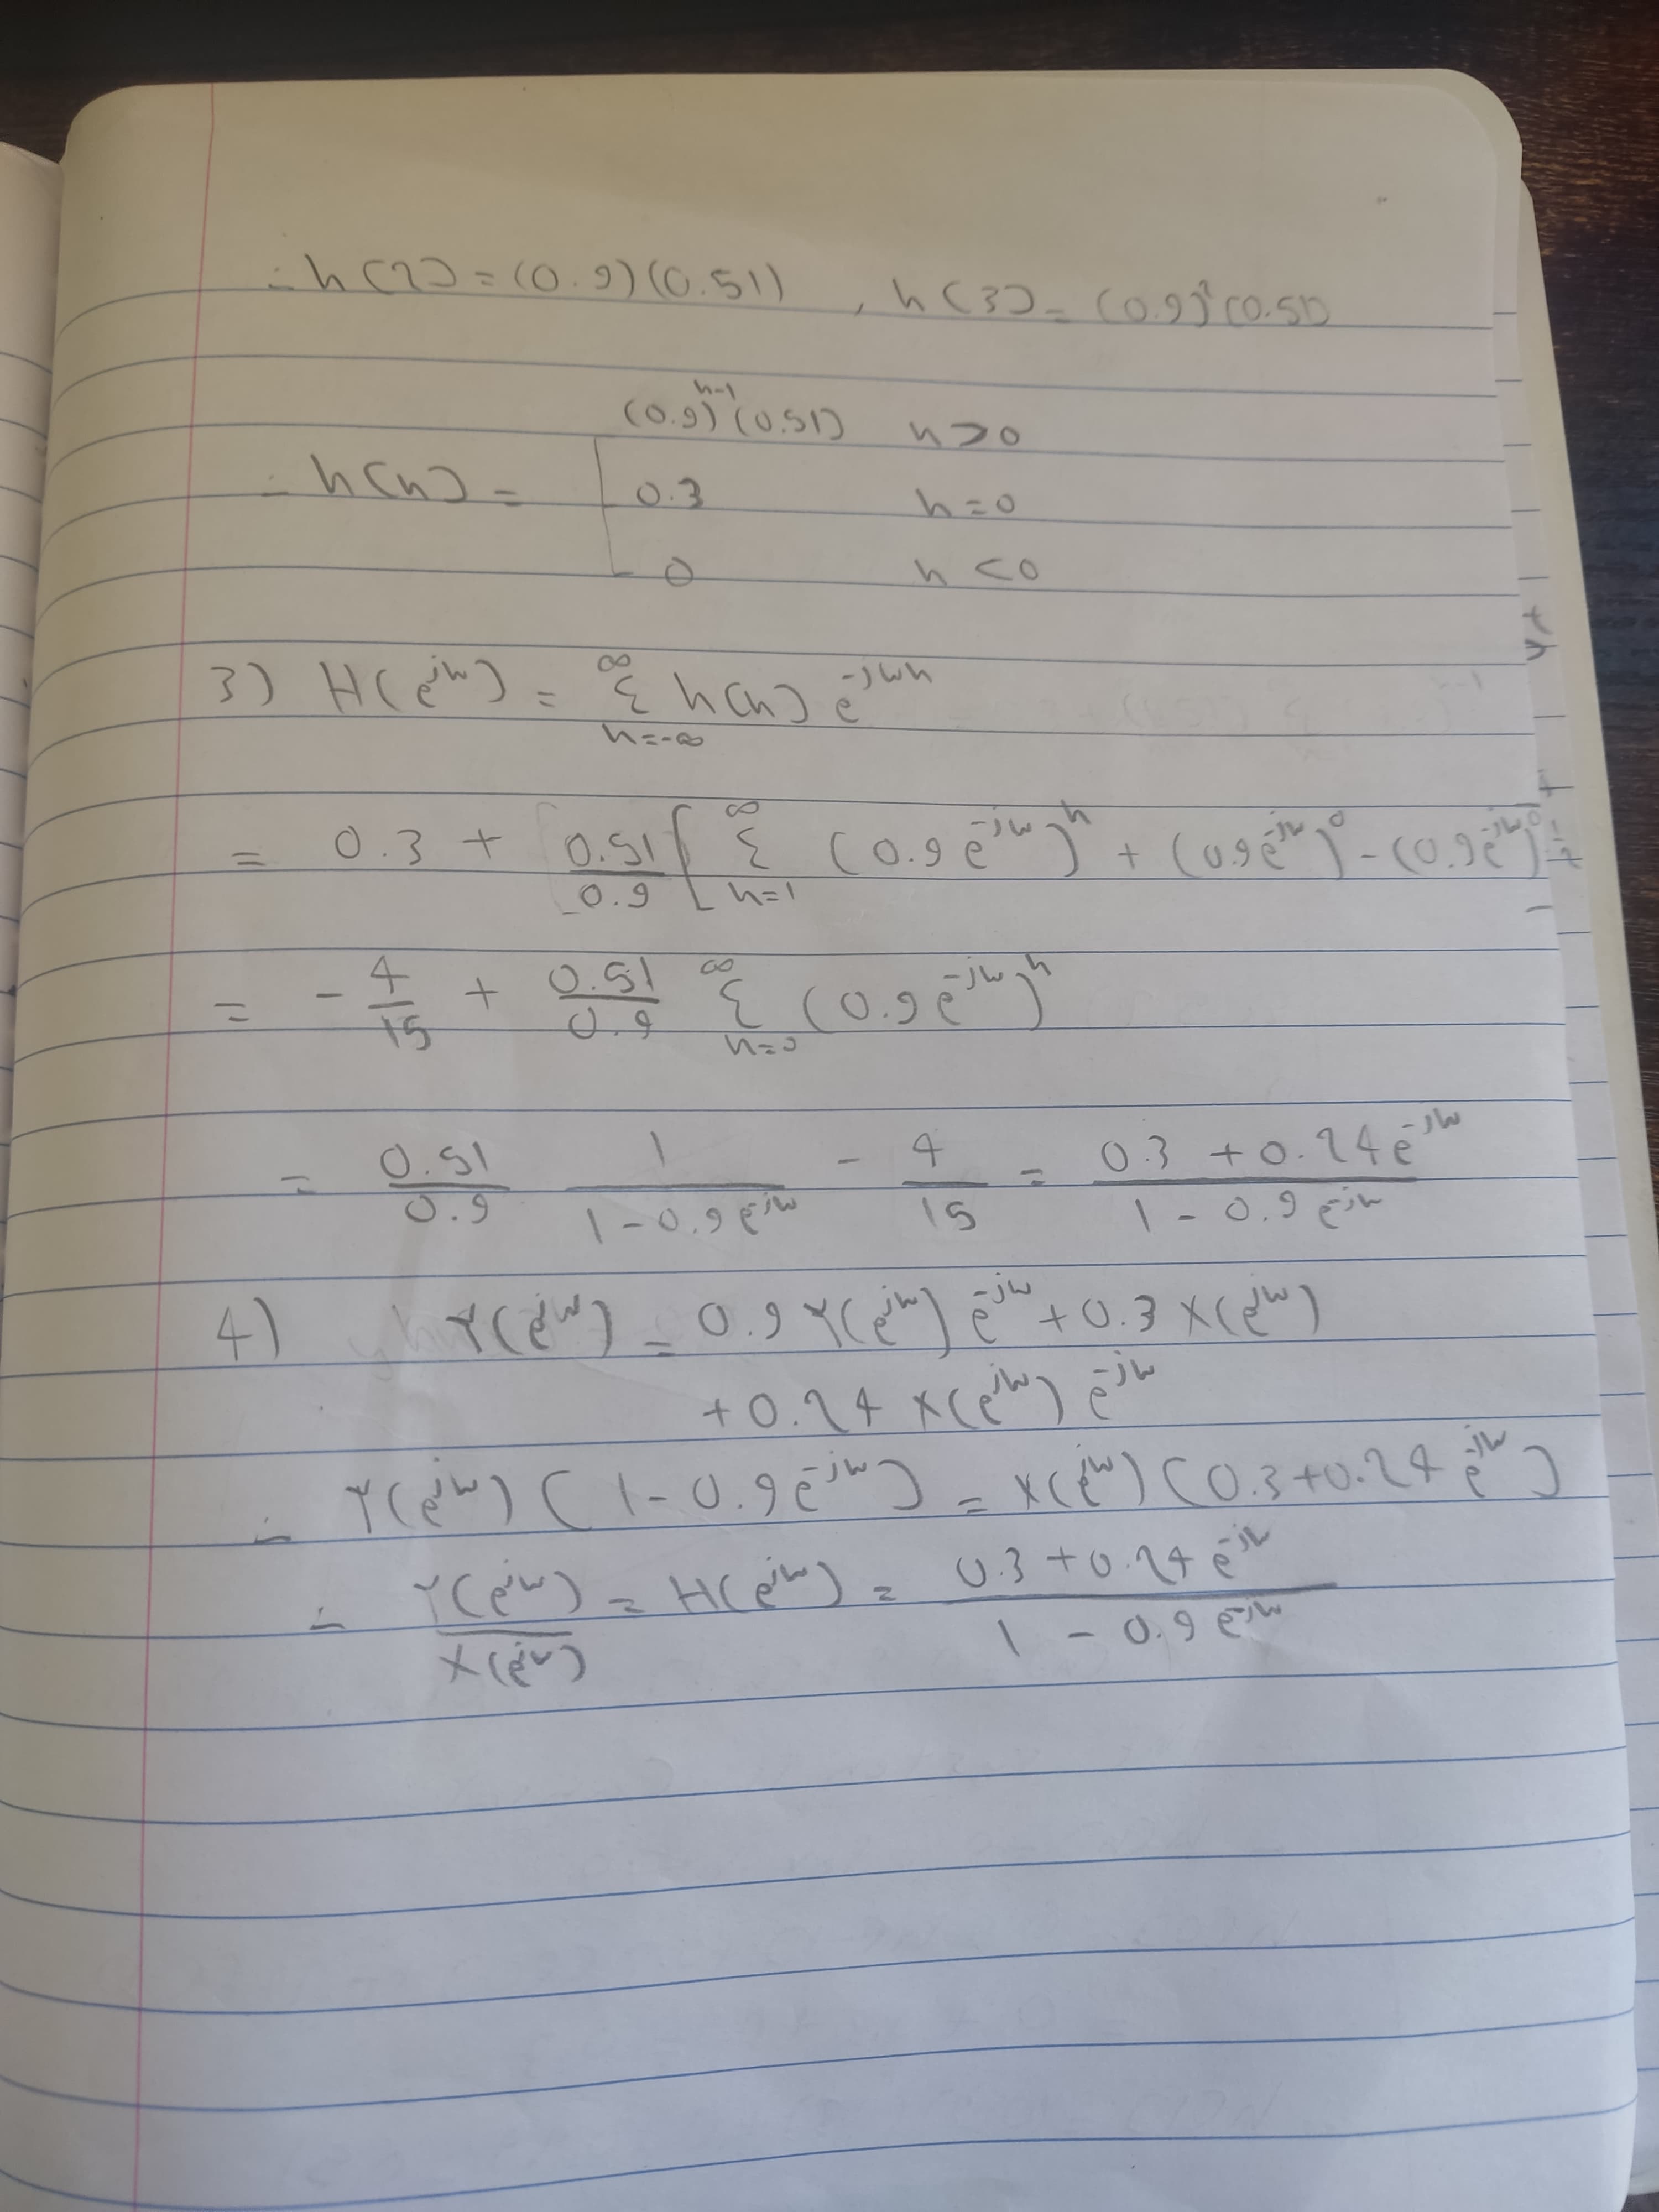 ∴ h(2) = (0.9)(0.51) , h(3) = (0.9)²(0.51)
(0.9)ⁿ⁻¹(0.51) n>0
∴ h(n) = 0.3 n=0
0 n<0
3) H(e^{jω}) = Σ_{n=-∞}^{∞} h(n) e^{-jωn}
= 0.3 + 0.51/0.9 [ Σ_{n=1}^{∞} (0.9 e^{-jω})^n + (0.9 e^{-jω})^0 - (0.9 e^{-jω})^0
= -4/15 + 0.51/0.9 Σ_{n=0}^{∞} (0.9 e^{-jω})^n
= 0.51/0.9 1/(1 - 0.9 e^{-jω}) - 4/15 = (0.3 + 0.24 e^{-jω})/(1 - 0.9 e^{-jω})
4) Y(e^{jω}) = 0.9 Y(e^{jω}) e^{-jω} + 0.3 X(e^{jω})
+ 0.24 X(e^{jω}) e^{-jω}
∴ Y(e^{jω}) (1 - 0.9 e^{-jω}) = X(e^{jω}) (0.3 + 0.24 e^{-jω})
∴ Y(e^{jω})/X(e^{jω}) = H(e^{jω}) = (0.3 + 0.24 e^{-jω})/(1 - 0.9 e^{-jω})